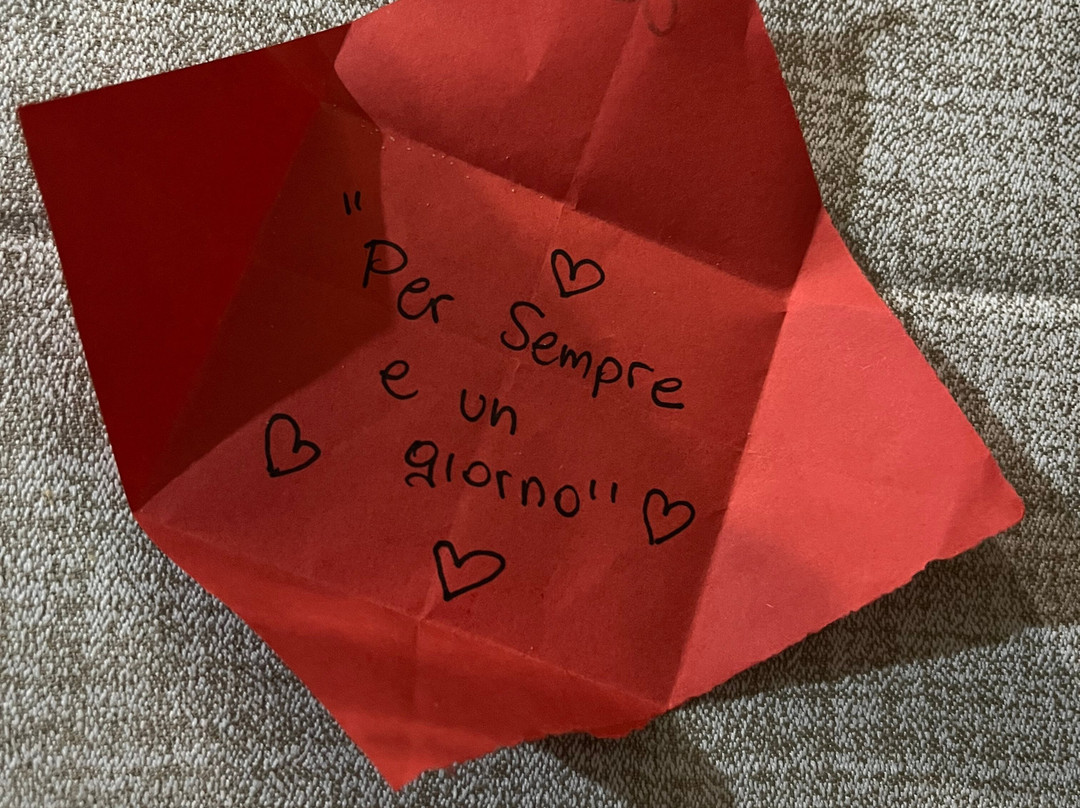 "Per Sempre
e un
giorno"